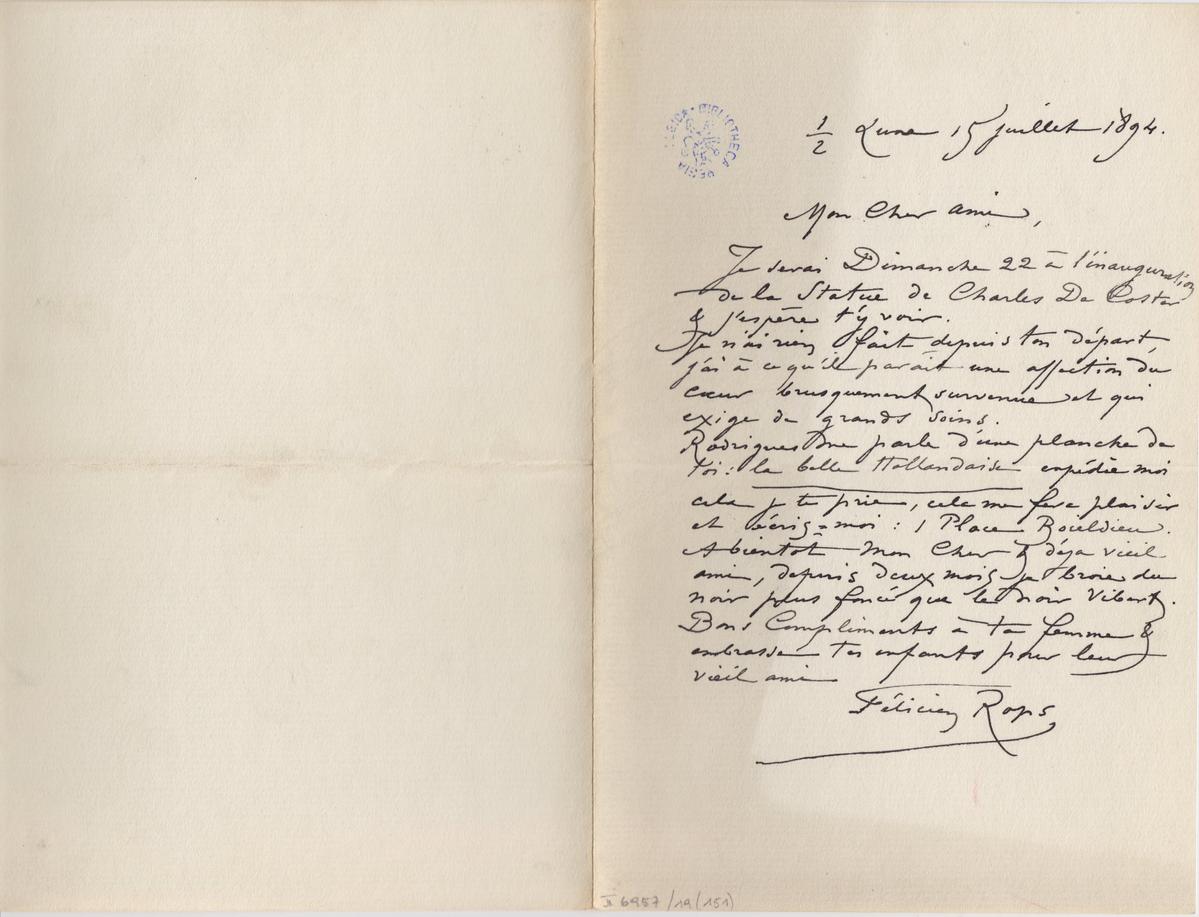 BIBLIOTHECA REGIA
½ Lune 15 juillet 1894.
Mon Cher ami,
Je serai Dimanche 22 à l'inauguration
de la Statue de Charles De Coster
& j'espère t'y voir.
Je n'ai rien fait depuis ton départ,
j'ai à ce qu'il parait une affection du
cœur brusquement survenue et qui
exige de grands soins.
Rodrigues me parle d'une planche de
toi : la belle Hollandaise expédie moi
cela je te prie, cela me fera plaisir
et écris-moi : 1 Place Boieldieu.
A bientôt Mon Cher & déja vieil
ami, depuis deux mois je broie du
noir plus foncé que le noir Vibert.
Bons Compliments à ta femme &
embrasse tes enfants pour leur
vieil ami
Félicien Rops
II 6957/19(151)